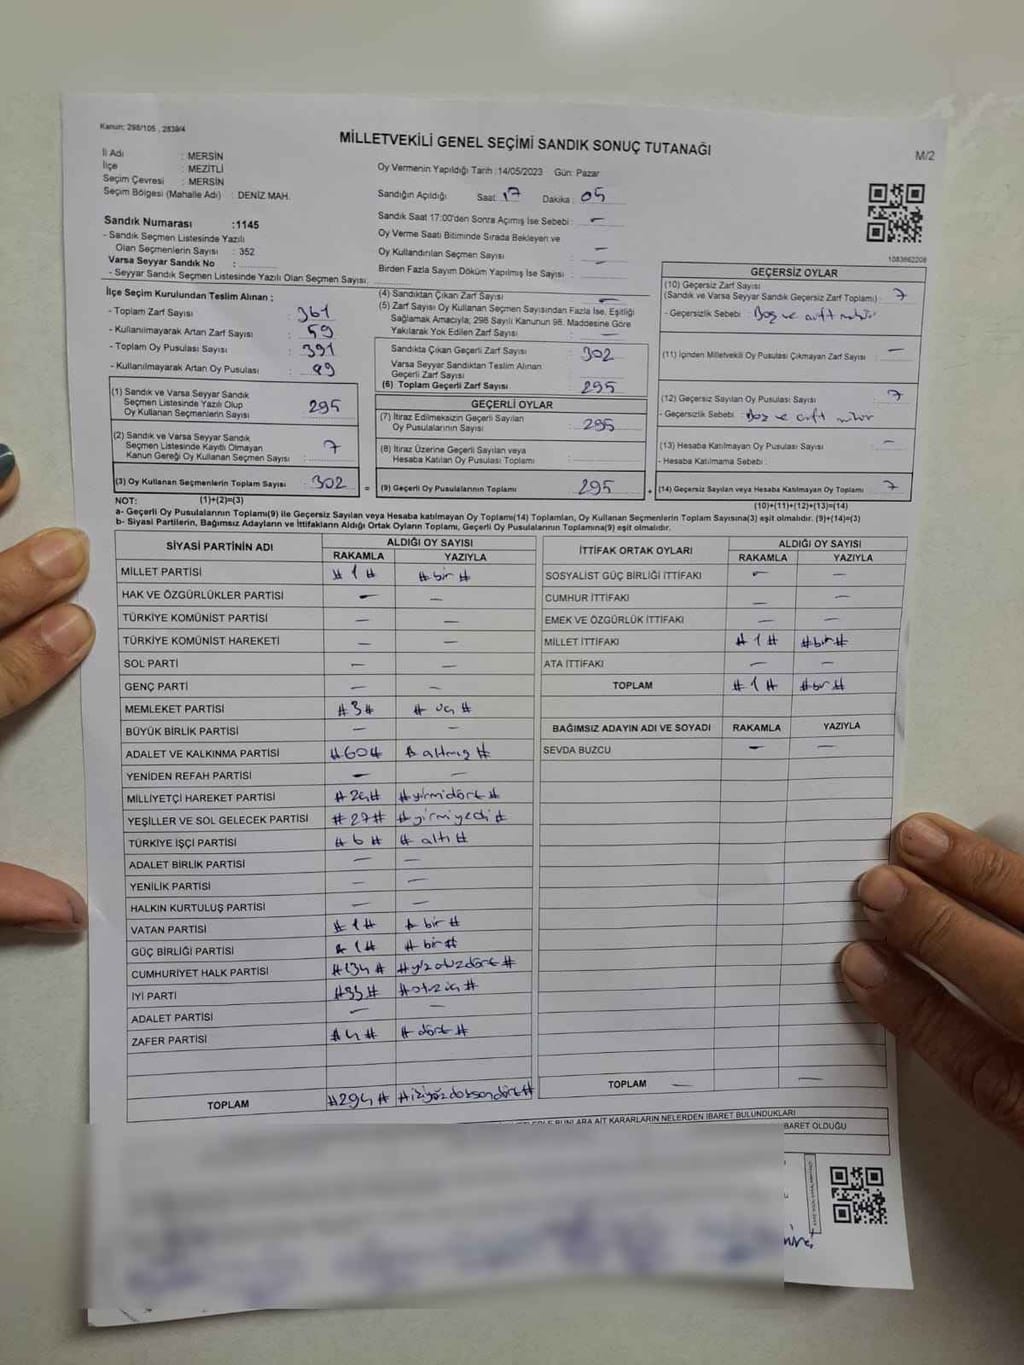 Kanun: 298/105 , 2839/4
MİLLETVEKİLİ GENEL SEÇİMİ SANDIK SONUÇ TUTANAĞI
M/2
İl Adı : MERSİN
İlçe : MEZİTLİ
Seçim Çevresi : MERSİN
Seçim Bölgesi (Mahalle Adı) : DENİZ MAH.
Sandık Numarası :1145
- Sandık Seçmen Listesinde Yazılı
Olan Seçmenlerin Sayısı : 352
Varsa Seyyar Sandık No :
- Seyyar Sandık Seçmen Listesinde Yazılı Olan Seçmen Sayısı
Oy Vermenin Yapıldığı Tarih :14/05/2023 Gün: Pazar
Sandığın Açıldığı Saat: 17 Dakika: 05
Sandık Saat 17:00'den Sonra Açımış İse Sebebi : —
Oy Verme Saati Bitiminde Sırada Bekleyen ve
Oy Kullandırılan Seçmen Sayısı : —
Birden Fazla Sayım Döküm Yapılmış İse Sayısı : —
1083662206
İlçe Seçim Kurulundan Teslim Alınan ;
- Toplam Zarf Sayısı : 361
- Kullanılmayarak Artan Zarf Sayısı : 59
- Toplam Oy Pusulası Sayısı : 391
- Kullanılmayarak Artan Oy Pusulası :
(1) Sandık ve Varsa Seyyar Sandık
Seçmen Listesinde Yazılı Olup
Oy Kullanan Seçmenlerin Sayısı : 295
(2) Sandık ve Varsa Seyyar Sandık
Seçmen Listesinde Kayıtlı Olmayan
Kanun Gereği Oy Kullanan Seçmen Sayısı : 7
(3) Oy Kullanan Seçmenlerin Toplam Sayısı : 302
(4) Sandıktan Çıkan Zarf Sayısı : —
(5) Zarf Sayısı Oy Kullanan Seçmen Sayısından Fazla İse, Eşitliği
Sağlamak Amacıyla; 298 Sayılı Kanunun 98. Maddesine Göre
Yakılarak Yok Edilen Zarf Sayısı : —
Sandıkta Çıkan Geçerli Zarf Sayısı : 302
Varsa Seyyar Sandıktan Teslim Alınan
Geçerli Zarf Sayısı :
(6) Toplam Geçerli Zarf Sayısı : 295
GEÇERLİ OYLAR
(7) İtiraz Edilmeksizin Geçerli Sayılan
Oy Pusulalarının Sayısı : 295
(8) İtiraz Üzerine Geçerli Sayılan veya
Hesaba Katılan Oy Pusulası Toplamı :
= (9) Geçerli Oy Pusulalarının Toplamı : 295
GEÇERSİZ OYLAR
(10) Geçersiz Zarf Sayısı
(Sandık ve Varsa Seyyar Sandık Geçersiz Zarf Toplamı) : 7
- Geçersizlik Sebebi : Boş ve çift mühür
(11) İçinden Milletvekili Oy Pusulası Çıkmayan Zarf Sayısı : —
(12) Geçersiz Sayılan Oy Pusulası Sayısı : 7
- Geçersizlik Sebebi : Boş ve çift mühür
(13) Hesaba Katılmayan Oy Pusulası Sayısı : —
- Hesaba Katılmama Sebebi :
+ (14) Geçersiz Sayılan veya Hesaba Katılmayan Oy Toplamı : 7
NOT: (1)+(2)=(3)
(10)+(11)+(12)+(13)=(14)
a- Geçerli Oy Pusulalarının Toplamı(9) ile Geçersiz Sayılan veya Hesaba katılmayan Oy Toplamı(14) Toplamları, Oy Kullanan Seçmenlerin Toplam Sayısına(3) eşit olmalıdır. (9)+(14)=(3)
b- Siyasi Partilerin, Bağımsız Adayların ve İttifakların Aldığı Ortak Oyların Toplamı, Geçerli Oy Pusulalarının Toplamına(9) eşit olmalıdır.
SİYASİ PARTİNİN ADI ALDIĞI OY SAYISI
RAKAMLA YAZIYLA
MİLLET PARTİSİ # 1 # # bir #
HAK VE ÖZGÜRLÜKLER PARTİSİ — —
TÜRKİYE KOMÜNİST PARTİSİ — —
TÜRKİYE KOMÜNİST HAREKETİ — —
SOL PARTİ — —
GENÇ PARTİ — —
MEMLEKET PARTİSİ #3# # üç #
BÜYÜK BİRLİK PARTİSİ — —
ADALET VE KALKINMA PARTİSİ #60# # altmış #
YENİDEN REFAH PARTİSİ — —
MİLLİYETÇİ HAREKET PARTİSİ #24# #yirmidört #
YEŞİLLER VE SOL GELECEK PARTİSİ #27# #yirmiyedi #
TÜRKİYE İŞÇİ PARTİSİ # 6 # # altı #
ADALET BİRLİK PARTİSİ — —
YENİLİK PARTİSİ — —
HALKIN KURTULUŞ PARTİSİ — —
VATAN PARTİSİ # 1 # # bir #
GÜÇ BİRLİĞİ PARTİSİ # 1 # # bir #
CUMHURİYET HALK PARTİSİ #134 # #yüzotuzdört #
İYİ PARTİ #33 # #otuzüç #
ADALET PARTİSİ — —
ZAFER PARTİSİ # 4 # # dört #
TOPLAM #294 # #ikiyüzdoksandört#
İTTİFAK ORTAK OYLARI ALDIĞI OY SAYISI
RAKAMLA YAZIYLA
SOSYALİST GÜÇ BİRLİĞİ İTTİFAKI — —
CUMHUR İTTİFAKI — —
EMEK VE ÖZGÜRLÜK İTTİFAKI — —
MİLLET İTTİFAKI # 1 # #bir#
ATA İTTİFAKI — —
TOPLAM # 1 # #bir#
BAĞIMSIZ ADAYIN ADI VE SOYADI RAKAMLA YAZIYLA
SEVDA BUZCU — —
TOPLAM — —
BUNLARA AİT KARARLARIN NELERDEN İBARET BULUNDUKLARI
İBARET OLDUĞU